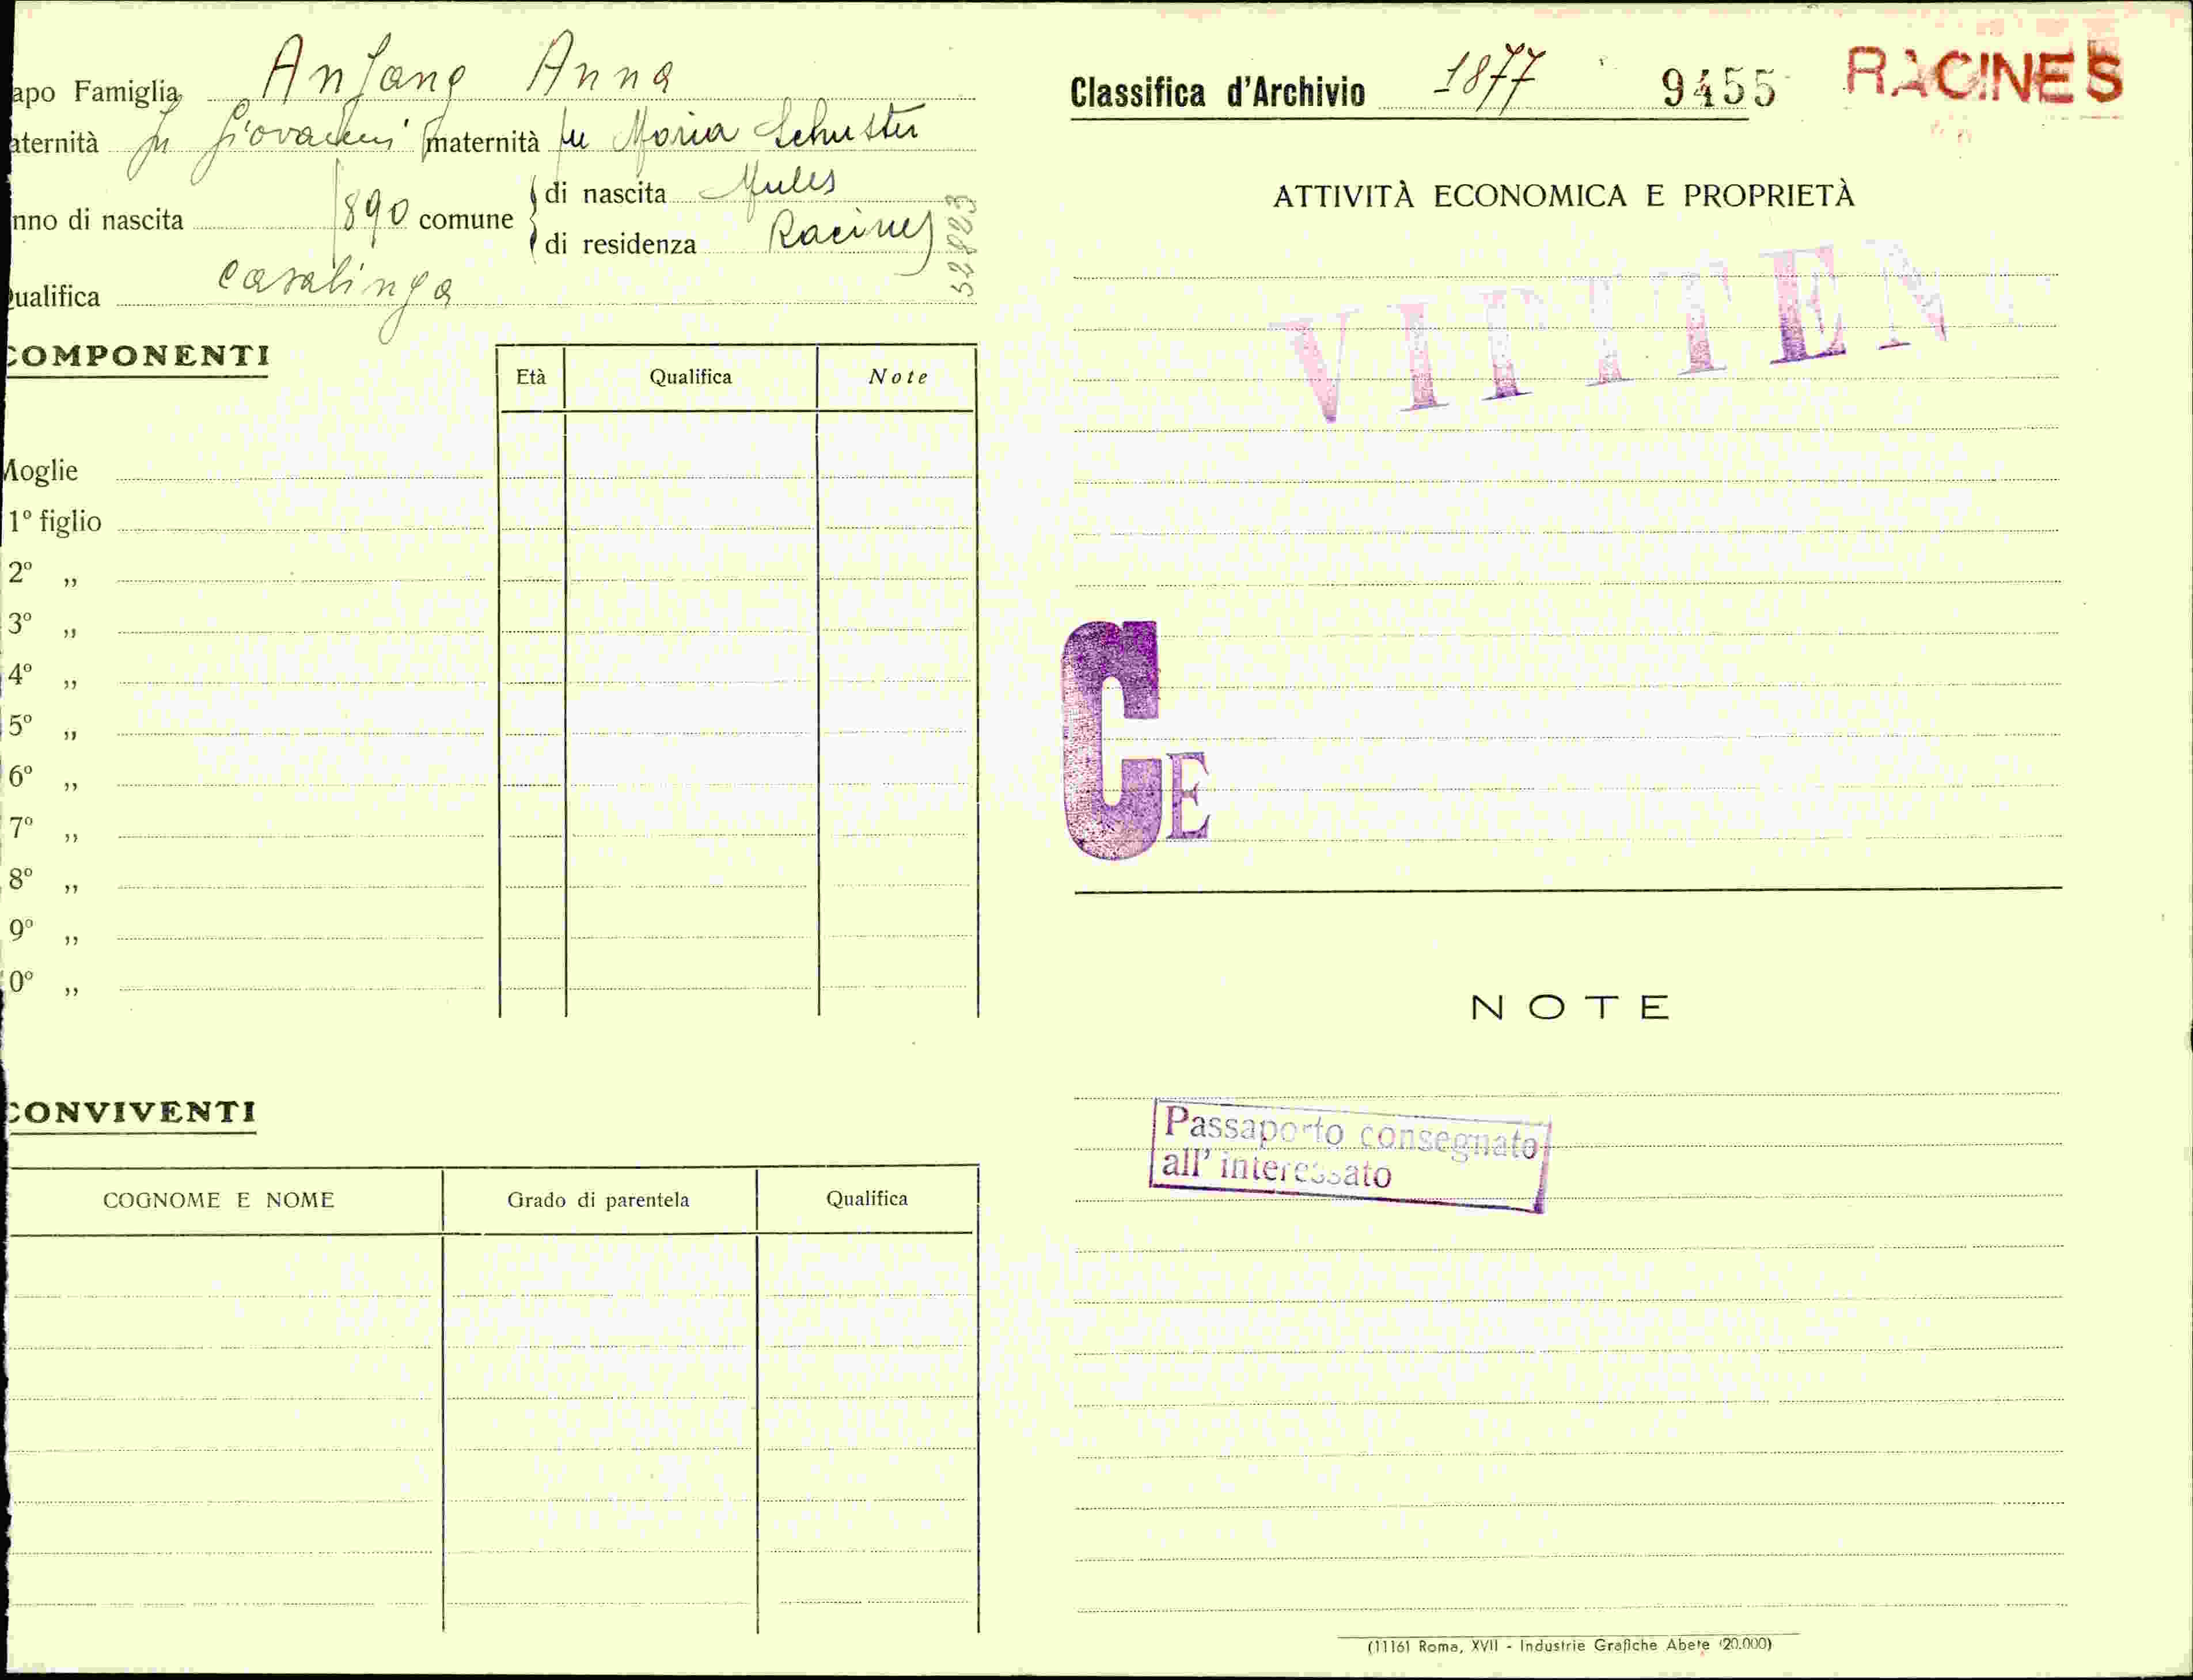 apo Famiglia Anfang Anna
aternità fu Giovanni maternità fu Maria Schuster
nno di nascita 1890 comune di nascita Mules
di residenza Racines
52823
ualifica casalinga
COMPONENTI
Età Qualifica Note
Moglie
1º figlio
2º „
3º „
4º „
5º „
6º „
7º „
8º „
9º „
0º „
CONVIVENTI
COGNOME E NOME Grado di parentela Qualifica
Classifica d'Archivio 1877 9455 RACINES
ATTIVITÀ ECONOMICA E PROPRIETÀ
VIPITEN
CE
NOTE
Passaporto consegnato
all' interessato
(1116) Roma, XVII - Industrie Grafiche Abete (20.000)